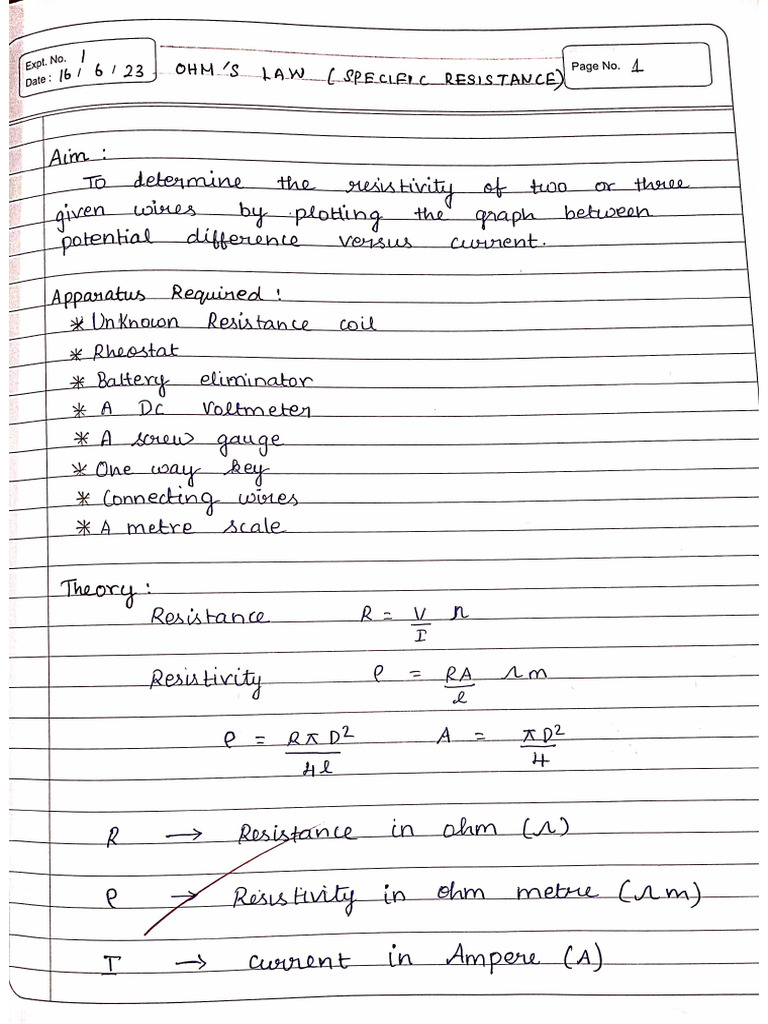 Expt. No. 1
Date : 16 / 6 / 23
OHM'S LAW (SPECIFIC RESISTANCE)
Page No. 1
Aim :
To determine the resistivity of two or three
given wires by plotting the graph between
potential difference versus current.
Apparatus Required :
* Unknown Resistance coil
* Rheostat
* Battery eliminator
* A DC Voltmeter
* A screw gauge
* One way key
* Connecting wires
* A metre scale
Theory :
Resistance R = V/I Ω
Resistivity ρ = RA/l Ωm
ρ = RπD²/4l A = πD²/4
R → Resistance in ohm (Ω)
ρ → Resistivity in ohm metre (Ωm)
I → current in Ampere (A)